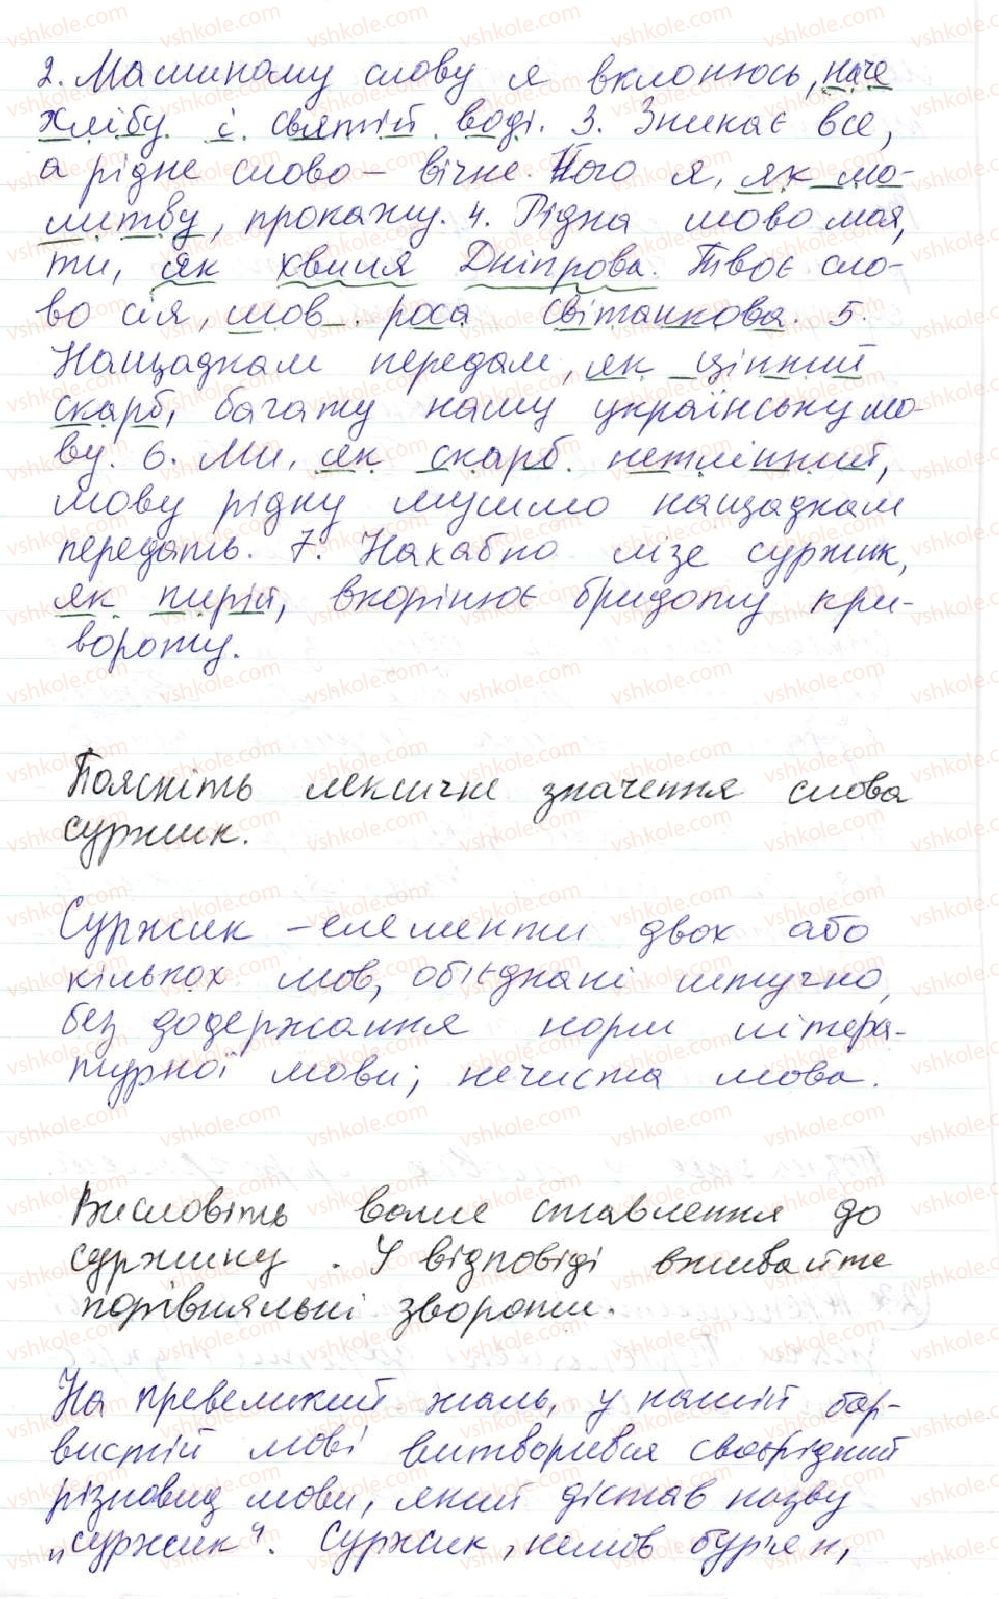 2. Машиному слову я вклонюсь, наче
хлібу і святій воді. 3. Зникає все,
а рідне слово – вічне. Його я, як мо-
литву, прокажу. 4. Рідна мово моя,
ти, як хвиля Дніпрова. Твоє сло-
во сія, мов роса світанкова. 5.
Нащадкам передам, як цінний
скарб, багату нашу українську мо-
ву. 6. Ми, як скарб нетлінний,
мову рідну мусимо нащадкам
передать. 7. Нахабно лізе суржик,
як пирій, вкорінює бридоту кри-
вороту.
Поясніть лексичне значення слова
суржик.
Суржик – елементи двох або
кількох мов, об'єднані штучно,
без додержання норм літера-
турної мови; нечиста мова.
Висловіть ваше ставлення до
суржику. У відповіді вживайте
порівняльні звороти.
На превеликий жаль, у нашій бар-
вистій мові витворився своєрідний
різновид мови, який дістав назву
„суржик“. Суржик, немов бур'ян,